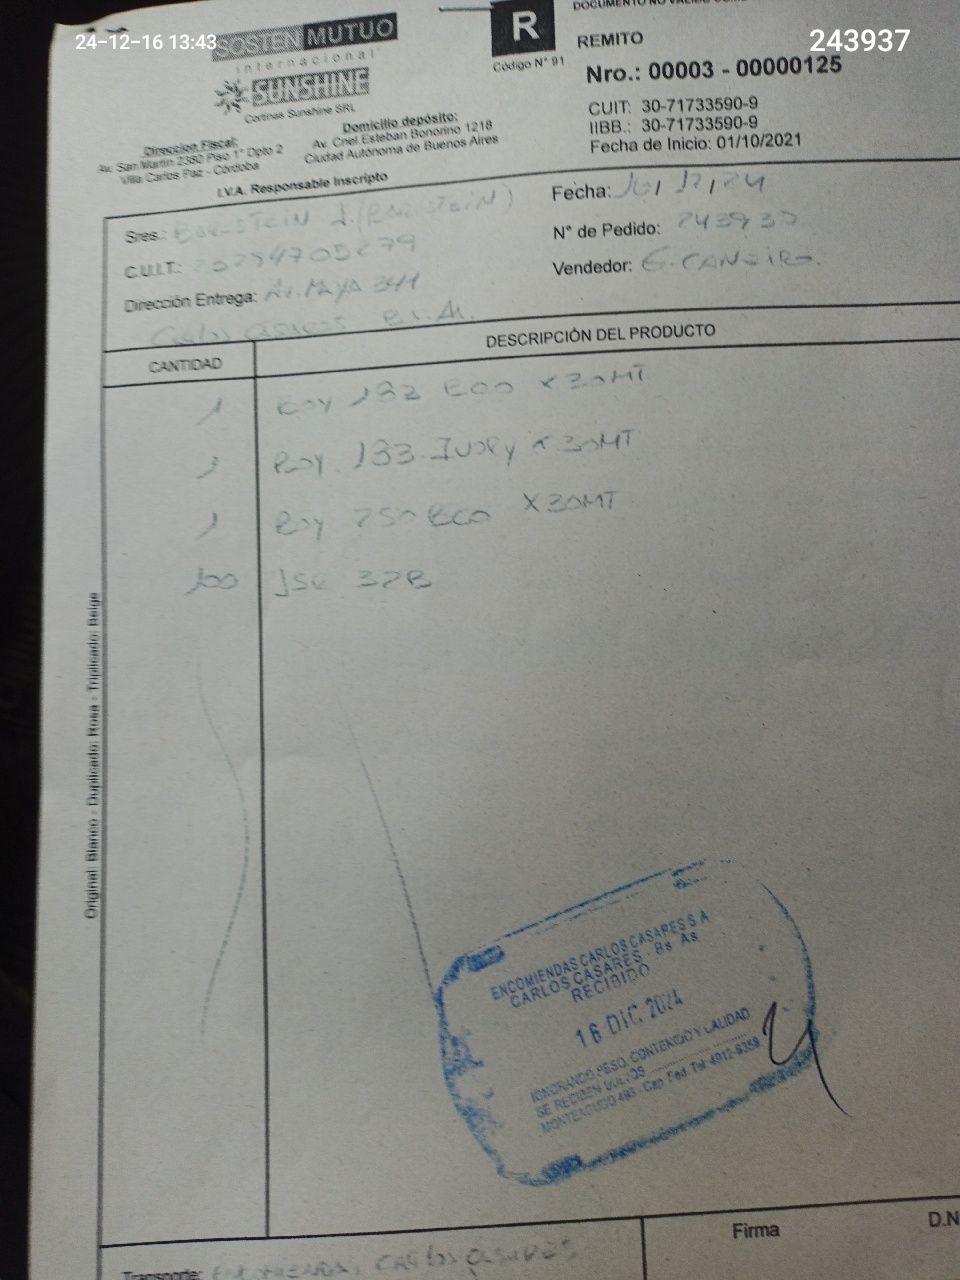 24-12-16 13:43
243937
SOSTEN MUTUO
internacional
SUNSHINE
Cortinas Sunshine SRL
Dirección Fiscal:
Av. San Martin 2380 Piso 1° Dpto 2
Villa Carlos Paz - Córdoba
Domicilio depósito:
Av. Cnel. Esteban Bonorino 1218
Ciudad Autónoma de Buenos Aires
I.V.A. Responsable Inscripto
R
Código N° 91
DOCUMENTO NO VALIDO COMO
REMITO
Nro.: 00003 - 00000125
CUIT: 30-71733590-9
IIBB.: 30-71733590-9
Fecha de Inicio: 01/10/2021
Sres.:
Fecha: 16/12/24
C.U.I.T.:
N° de Pedido: 243937
Dirección Entrega: Av. Maya 341
Vendedor:
Carlos Casares Bs. As.
CANTIDAD
DESCRIPCIÓN DEL PRODUCTO
1 Roy 133 BCO X 30MT
1 Roy. 133 Ivory X 30MT
1 Roy 250 BCO X 30MT
100 37B
Original: Blanco - Duplicado: Rosa - Triplicado: Beige
ENCOMIENDAS CARLOS CASARES S A
CARLOS CASARES - Bs As
RECIBIDO
16 DIC. 2024
IGNORANDO PESO, CONTENIDO Y CALIDAD
SE RECIBEN BULTOS
MONTEAGUDO 493 - Cap Fed Tel 4912-9359
Firma
D.N
Transporte: Encomiendas Carlos Casares